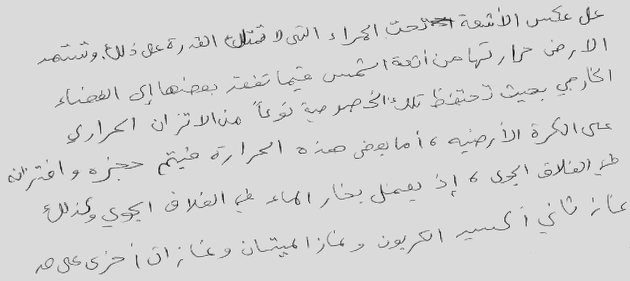 على عكس الأشعة تحت الحمراء التي لا تمتلك القدرة على ذلك. وتستمد
الارض حرارتها من أشعة الشمس فيما تفقد بعضها إلى الفضاء
الخارجي بحيث تحتفظ تلك الخصوصية نوعاً من الاتزان الحراري
على الكرة الأرضيه ، أما بعض هذه الحرارة فيتم حجزه وافتزانه
في الغلاف الجوي ، إذ يعمل بخار الماء في الغلاف الجوي وكذلك
غاز ثاني أكسيد الكربون وغاز الميثان وغازات أخرى على صد